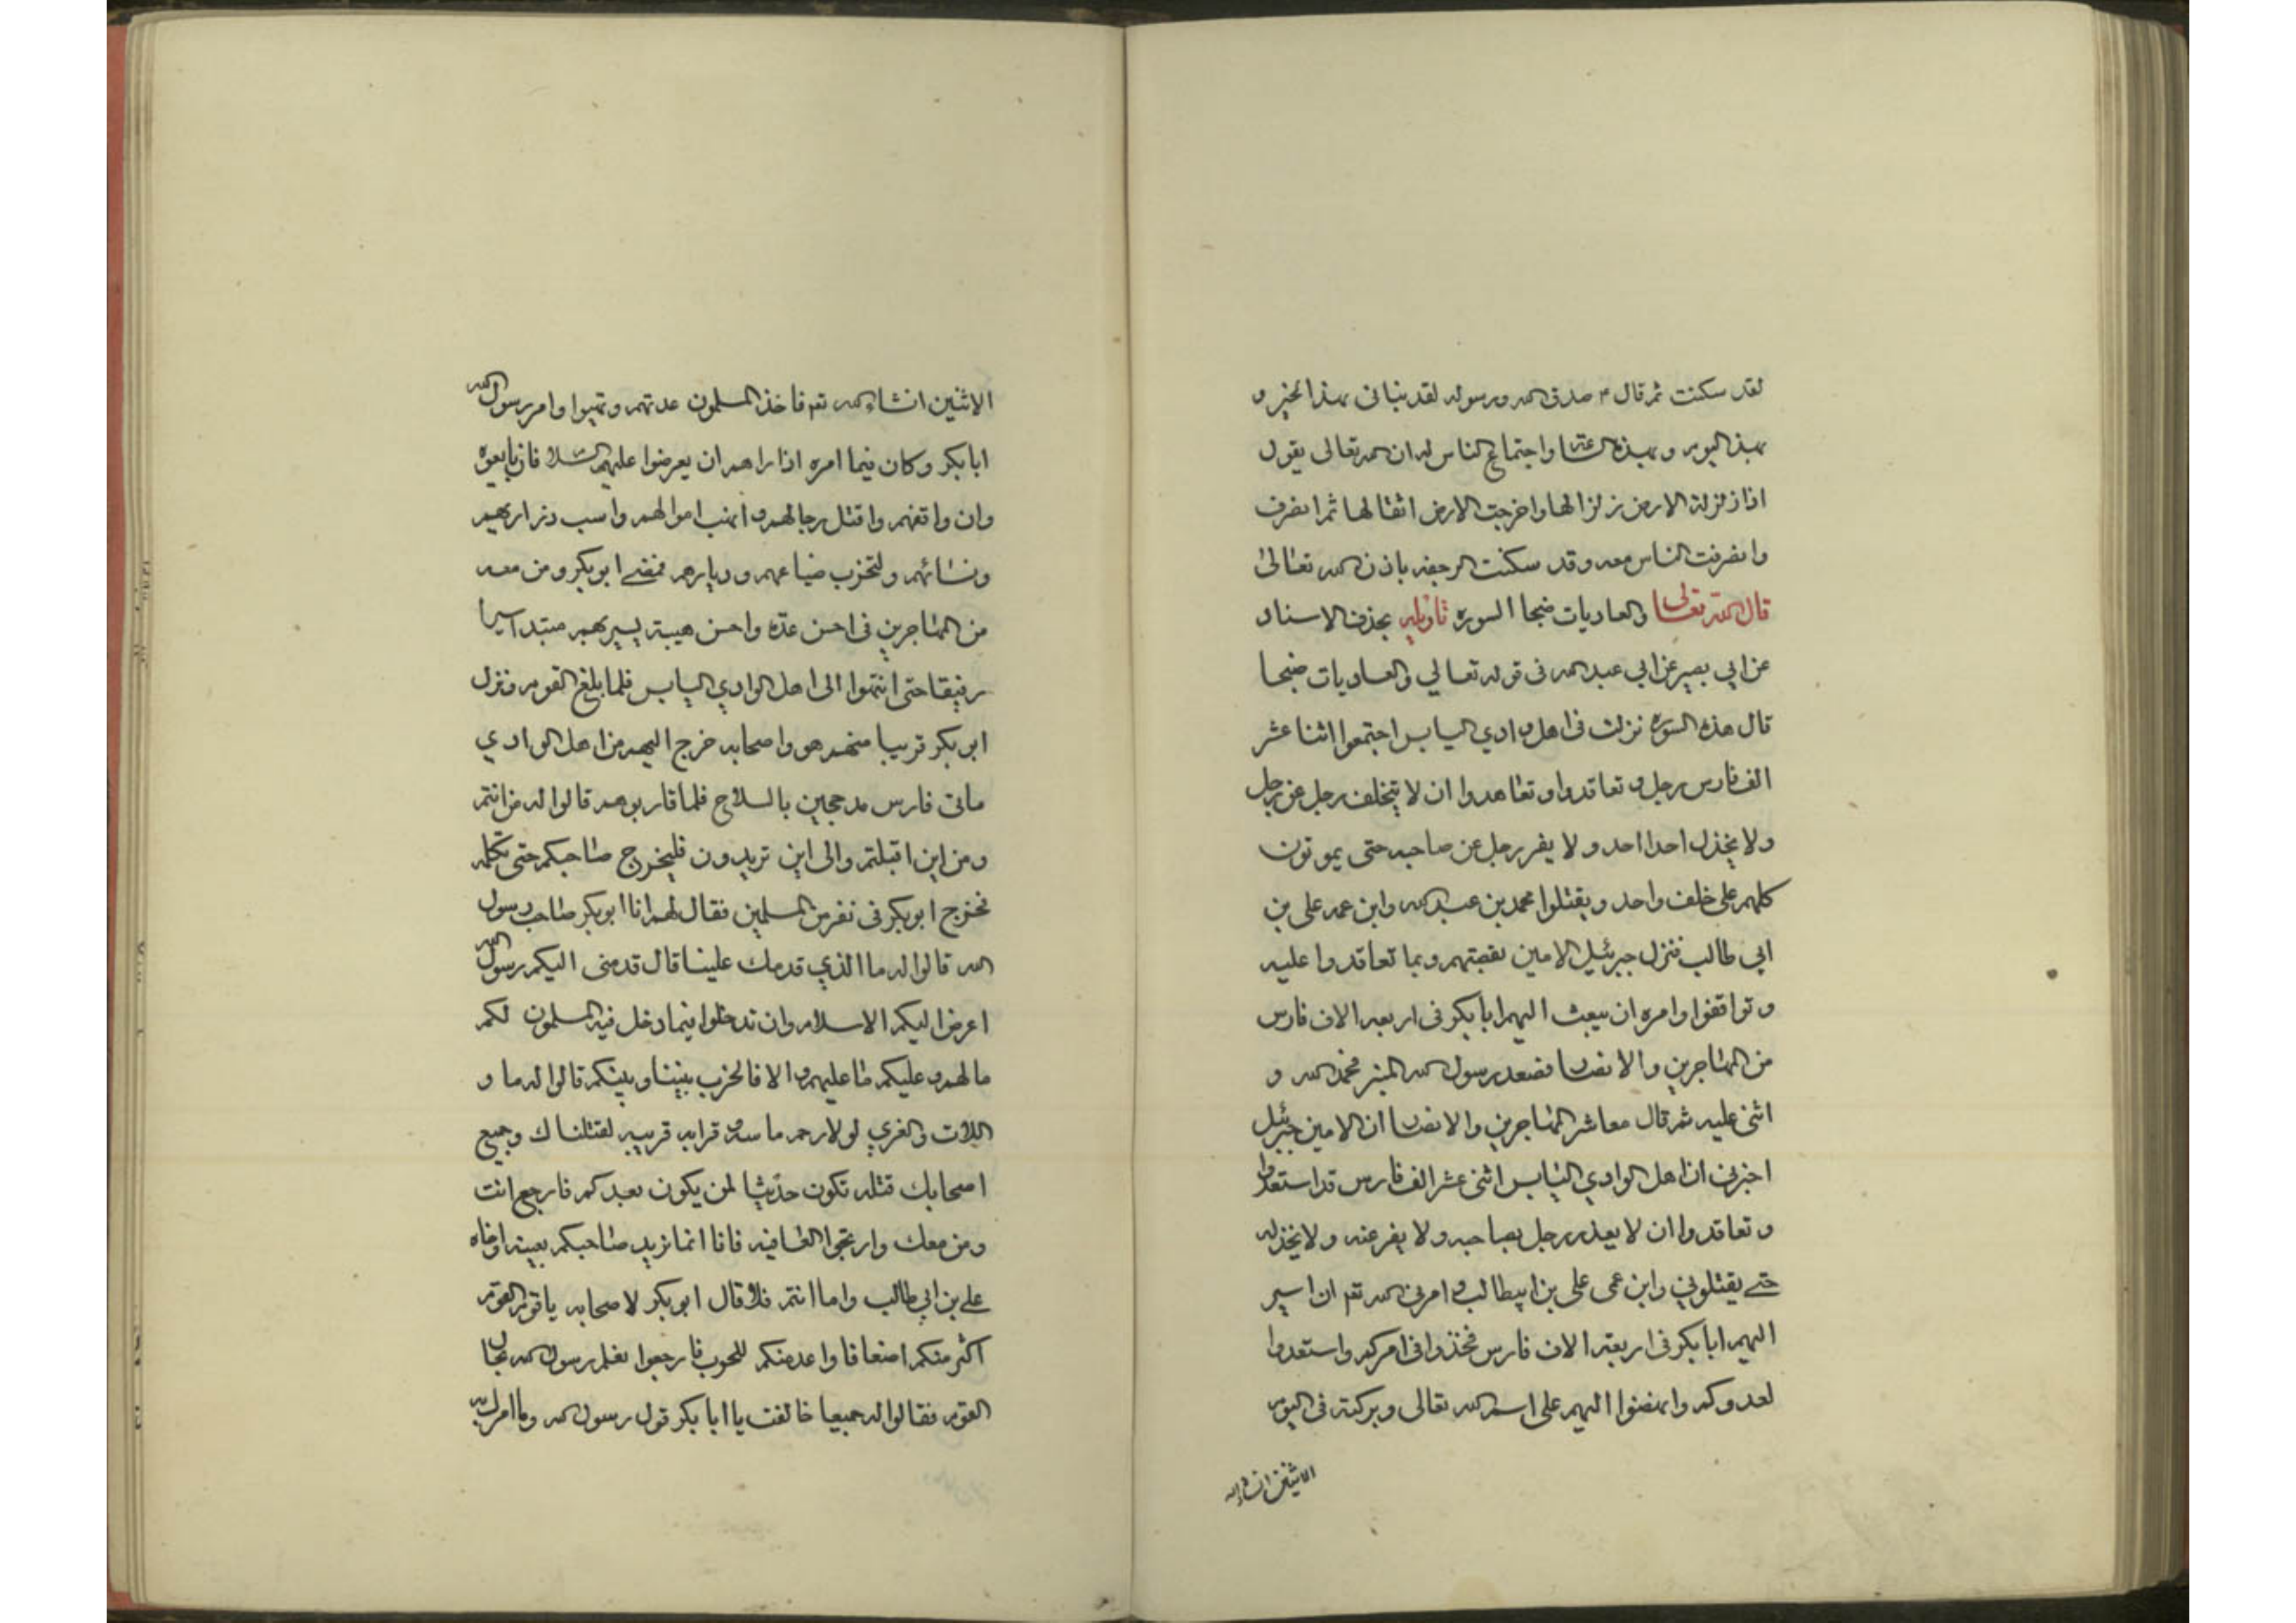 لقد سكنت ثم قال م صدق الله ورسوله لقد نبانى بهذا الخبر و
بهذا اليوم وبهذه الساعة واجتماع الناس له ان الله تعالى يقول
اذا زلزلة الارض زلزالها واخرجت الارض اثقالها ثم انصرف
وانصرفت الناس معه وقد سكنت الرجفه باذن الله تعالى
قال الله تعالى والعاديات ضبحا السوره تاويله بحذف الاسناد
عن ابي بصير عن ابي عبد الله فى قوله تعالي والعاديات ضبحا
قال هذه السوره نزلت فى اهل وادي اليابس اجتمعوا اثنا عشر
الف فارس رجل و تعاقدوا و تعاهدوا ان لا يتخلف رجل عن رجل
ولا يخذل احدا احد ولا يفر رجل عن صاحبه حتى يموتون
كلهم على خلف واحد ويقتلوا محمد بن عبد الله وابن عمه على بن
ابي طالب فنزل جبرئيل الامين بقصتهم وبما تعاقدوا عليه
وتواقفوا وامره ان يبعث اليهم ابا بكر فى اربعه الاف فارس
من المهاجرين والانصار فصعد رسول الله المنبر فحمد الله و
اثنى عليه ثم قال معاشر المهاجرين والانصار ان الامين جبرئيل
اخبرنى ان اهل الوادي اليابس اثنى عشر الف فارس قد استعدوا
وتعاقدوا ان لا يعذر رجل بصاحبه ولا يفر عنه ولا يخذله
حتى يقتلوني وابن عمى على بن ابيطالب و امرنى الله تعم ان اسير
اليهم ابا بكر فى اربعة الاف فارس فخذوا فى امركم واستعدوا
لعدوكم وانهضوا اليهم على اسم الله تعالى وبركته فى اليوم
الاثنين انشاء الله
الاثنين انشاء الله تعم فاخذ المسلمون عدتهم وتهيوا وامر رسول الله
ابا بكر وكان فيما امره اذا راهم ان يعرضوا عليهم الاسلام فان بايعوه
وان واقفهم واقتل رجالهم و انهب اموالهم واسب ذراريهم
ونسائهم ولتخرب ضياعهم وديارهم فمضى ابو بكر ومن معه
من المهاجرين فى احسن عدة واحسن هيبة يسير بهم مبتدا سيرا
رفيقا حتى انتهوا الى اهل الوادي اليابس فلما بلغ القوم ونزل
ابو بكر قريبا منهم هو واصحابه خرج اليهم من اهل الوادي
ماتى فارس مدججين بالسلاح فلما قاربوهم قالوا له من انتم
ومن اين اقبلتم والى اين تريدون فليخرج صاحبكم حتى نكلمه
فخرج ابو بكر فى نفر من المسلمين فقال لهم انا ابو بكر صاحب رسول
الله قالوا له ما الذي قدمك علينا قال قدمنى اليكم رسول الله
اعرض اليكم الاسلام وان تدخلوا فيما دخل فيه المسلمون لكم
ما لهم و عليكم ما عليهم و الا فالحرب بيننا وبينكم قالوا له ما و
اللات والعزي لو لا رحم ماسه و قرابه قريبه لقتلناك وجميع
اصحابك قتله تكون حديثا لمن يكون بعدكم فارجع انت
ومن معك وارتجوا العافيه فانا انما نريد صاحبكم بعينه واخاه
علي بن ابي طالب واما انتم فلا قال ابو بكر لاصحابه يا قوم القوم
اكثر منكم اضعافا واعد منكم للحرب فارجعوا نعلم رسول الله بحال
القوم فقالوا له جميعا خالفت يا ابا بكر قول رسول الله وما امرك به